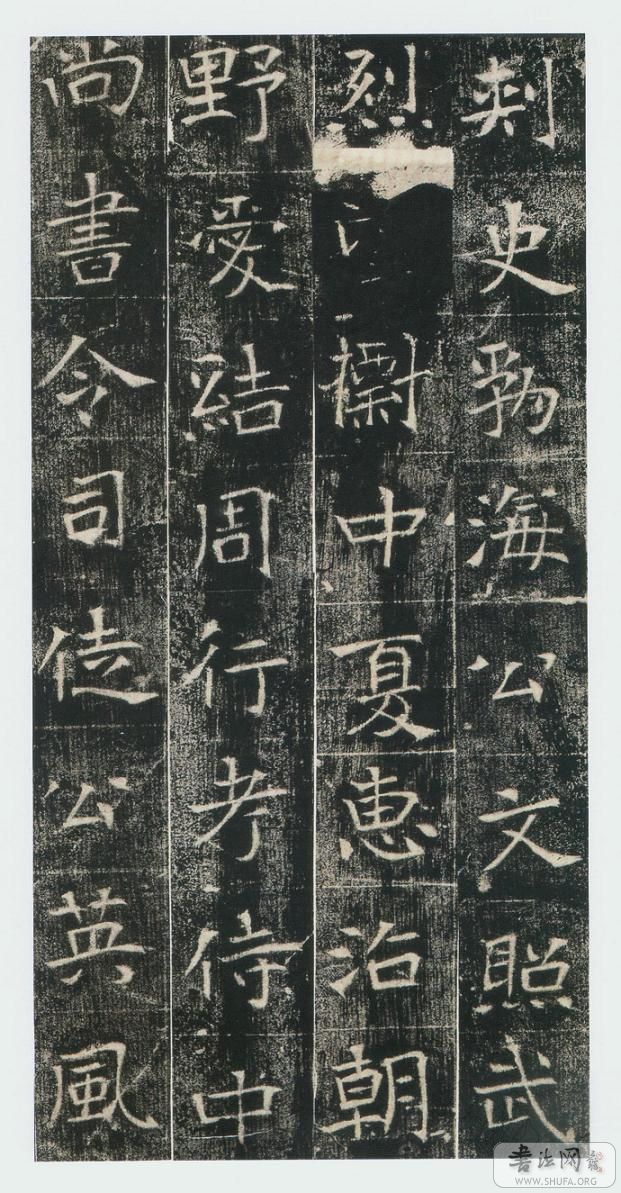 刺史勃海公文照武
烈中夏惠治朝
野愛結周行考侍中
尚書令司徒公英風
書法网
WWW.SHUFA.ORG